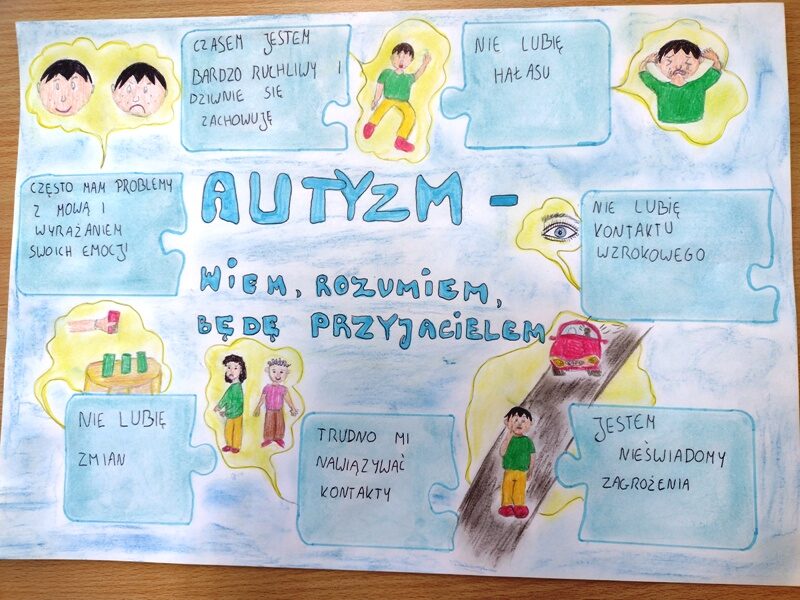 CZASEM JESTEM
BARDZO RUCHLIWY I
DZIWNIE SIĘ
ZACHOWUJĘ
NIE LUBIĘ
HAŁASU
CZĘSTO MAM PROBLEMY
Z MOWĄ I
WYRAŻANIEM
SWOICH EMOCJI
AUTYZM -
WIEM, ROZUMIEM,
BĘDĘ PRZYJACIELEM
NIE LUBIĘ
KONTAKTU
WZROKOWEGO
NIE LUBIĘ
ZMIAN
TRUDNO MI
NAWIĄZYWAĆ
KONTAKTY
JESTEM
NIEŚWIADOMY
ZAGROŻENIA